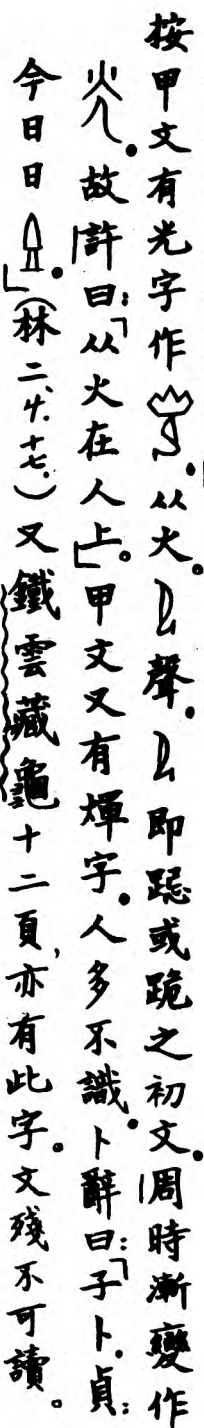 按甲文有光字作。从火。聲。即跽或跪之初文。周時漸變作
。故許曰:「从火在人上。」甲文又有煇字。人多不識、卜辭曰:「子卜.貞:
今日日。」(林二、廿.十七.)又鐵雲藏龜十二頁,亦有此字。文殘不可讀。